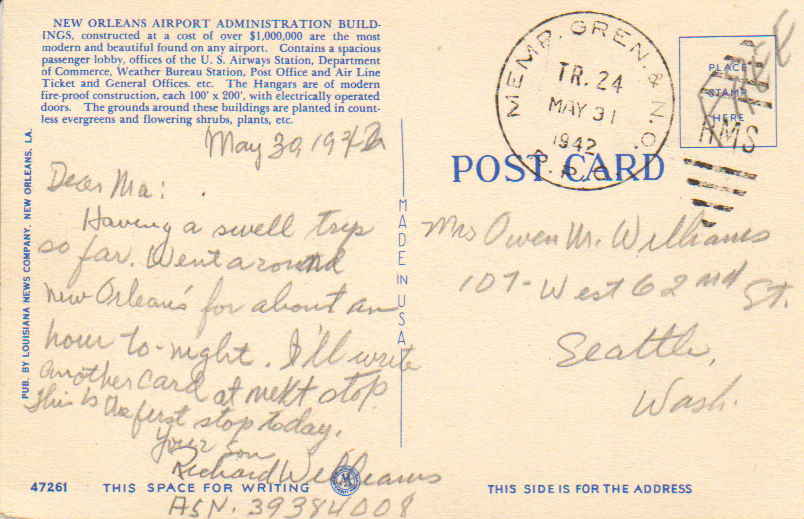 NEW ORLEANS AIRPORT ADMINISTRATION BUILD-
INGS, constructed at a cost of over $1,000,000 are the most
modern and beautiful found on any airport. Contains a spacious
passenger lobby, offices of the U. S. Airways Station, Department
of Commerce, Weather Bureau Station, Post Office and Air Line
Ticket and General Offices. etc. The Hangars are of modern
fire-proof construction, each 100' x 200', with electrically operated
doors. The grounds around these buildings are planted in count-
less evergreens and flowering shrubs, plants, etc.
May 30, 1942
Dear Ma:
Having a swell trip
so far. Went around
New Orleans for about an
hour to-night. I'll write
another card at next stop
This is the first stop today.
Your son
Richard Williams
ASN. 39384008
47261 THIS SPACE FOR WRITING
PUB. BY LOUISIANA NEWS COMPANY, NEW ORLEANS, LA.
MADE IN USA
MEMP. GREN. & N.O.
TR. 24
MAY 31
1942
R.P.O.
PLACE
STAMP
HERE
FREE
RMS
POST CARD
Mrs Owen M. Williams
107-West 62nd St.
Seattle,
Wash.
THIS SIDE IS FOR THE ADDRESS